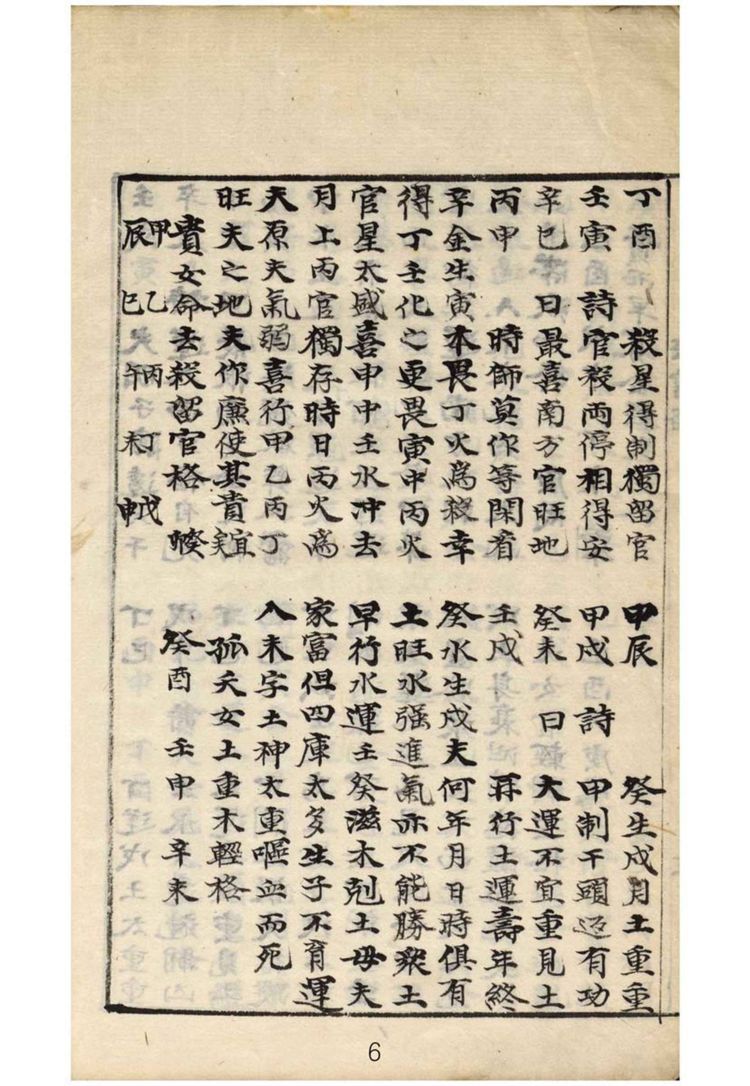 丁酉　殺星得制獨留官
壬寅　詩　官殺兩停相得安
辛巳　曰　最喜南方官旺地
丙申　時師莫作等閑看
辛金生寅本畏丁火為殺幸
得丁壬化之更畏寅中丙火
官星太盛喜申中壬水冲去
月上丙官獨存時日丙火為
天原夫氣弱喜行甲乙丙丁
旺夫之地夫作廉使其貴宜
貴女命去殺留官格　癸卯
甲辰　乙巳　丙午　丁未　戊申
甲辰　癸生戌月土重重
甲戌　詩　甲制干頭有功
癸未　曰　大運不宜重見土
壬戌　再行土運壽年終
癸水生戌夫何年月日時俱有
土旺水强進氣亦不能勝衆土
早行水運壬癸滋木剋土母夫
家富但四庫太多生子不育運
入未字土神太重嘔血而死
孤夭女土重木輕格
癸酉　壬申　辛未
6